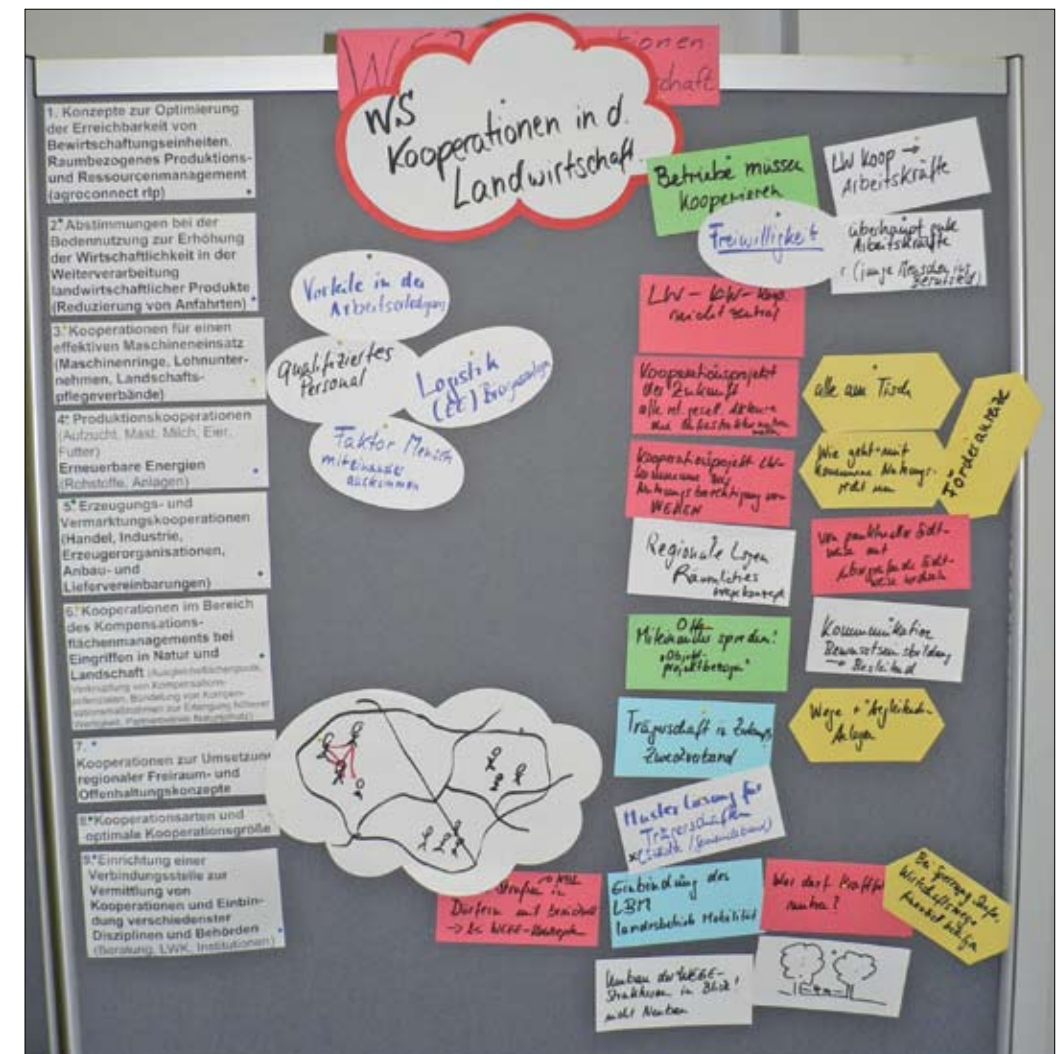 WS
Kooperationen in d.
Landwirtschaft
1. Konzepte zur Optimierung
der Erreichbarkeit von
Bewirtschaftungseinheiten.
Raumbezogenes Produktions-
und Ressourcenmanagement
(agroconnect rlp)
2. Abstimmungen bei der
Bodennutzung zur Erhöhung
der Wirtschaftlichkeit in der
Weiterverarbeitung
landwirtschaftlicher Produkte
(Reduzierung von Anfahrten)
3. Kooperationen für einen
effektiven Maschineneinsatz
(Maschinenringe, Lohnunter-
nehmen, Landschafts-
pflegeverbände)
4. Produktionskooperationen
(Aufzucht, Mast, Milch, Eier,
Futter)
Erneuerbare Energien
(Rohstoffe, Anlagen)
5. Erzeugungs- und
Vermarktungskooperationen
(Handel, Industrie,
Erzeugerorganisationen,
Anbau- und
Liefervereinbarungen)
6. Kooperationen im Bereich
des Kompensations-
flächenmanagements bei
Eingriffen in Natur und
Landschaft (Ausgleichsflächenpools,
Verknüpfung von Kompensations-
potenzialen, Bündelung von Kompen-
sationsmaßnahmen zur Erlangung höherer
Wertigkeit, Partnerbetrieb Naturschutz)
7.
Kooperationen zur Umsetzung
regionaler Freiraum- und
Offenhaltungskonzepte
8. Kooperationsarten und
optimale Kooperationsgröße
9. Einrichtung einer
Verbindungsstelle zur
Vermittlung von
Kooperationen und Einbin-
dung verschiedenster
Disziplinen und Behörden
(Beratung, LWK, Institutionen)
Vorteile in der
Arbeitserledigung
Qualifiziertes
Personal
Logistik
(EE) Biogasanlage
Faktor Mensch
miteinander
auskommen
Betriebe müssen
kooperieren
LW Koop →
Arbeitskräfte
Freiwilligkeit
überhaupt gute
Arbeitskräfte
(junge Menschen ins
Berufsfeld)
LW - KW - Koop.
nicht zentral
Kooperationsprojekt
der Zukunft
alle rel. gesell. Akteure
alle am Tisch
Förderanreize
Kooperationsprojekt LW-
Kommune bei
Nutzungsberechtigung von
WEGEN
Wie geht mit
Kommune Nutzungs-
recht um
Regionale Lösen
Räumliches
Wegekonzept
Von punktueller Sicht-
weise auf
übergreifende Sicht-
weise
Offen
Miteinander sprechen!
"Objekt-
projektbezogen"
Kommunikation
Bewusstseinsbildung
→ Begleitend
Trägerschaft in Zukunft
Zweckverband
Wege + Begleitende
Anlagen
Muster Lösung für
Trägerschaften
(Städte / Gemeindebund)
Straßen in
Dörfern
Einbindung des
LBM
Landesbetrieb Mobilität
Wer darf
nutzen?
Bei Sperrung Straße
Wirtschaftswege
Umbau der WEGE-
Strukturen in Blick!
nicht Neubau